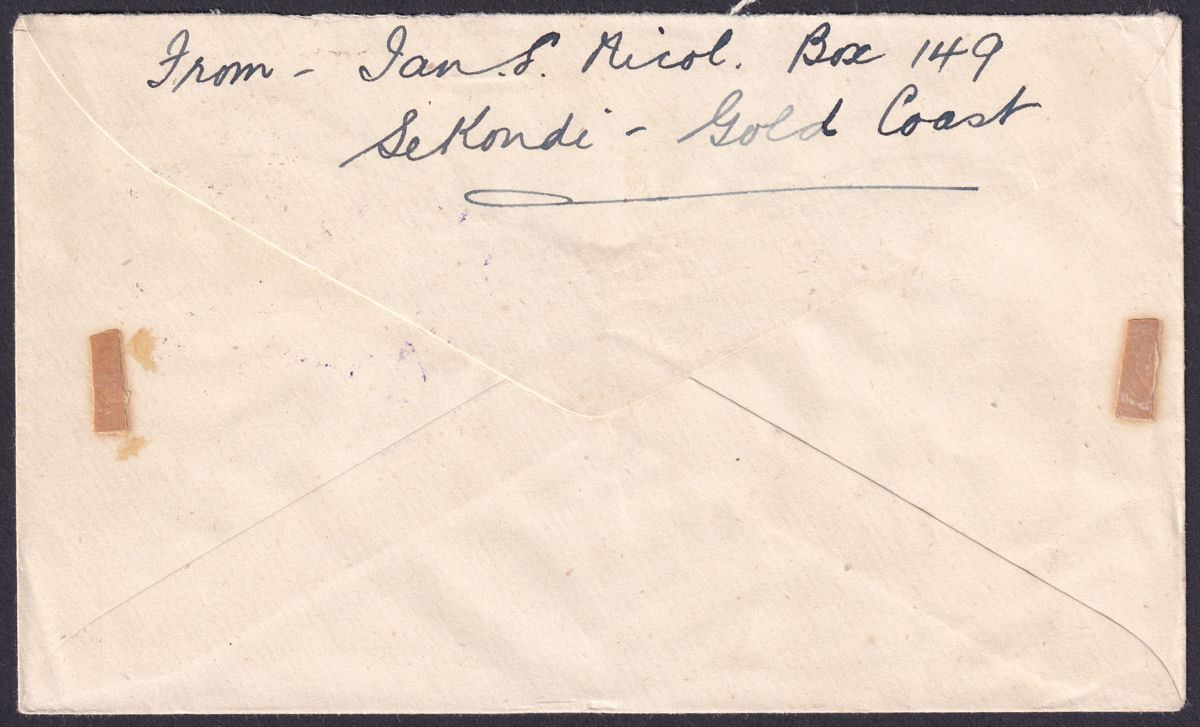 From - Ian. S. Nicol. Box 149
SeKondi - Gold Coast